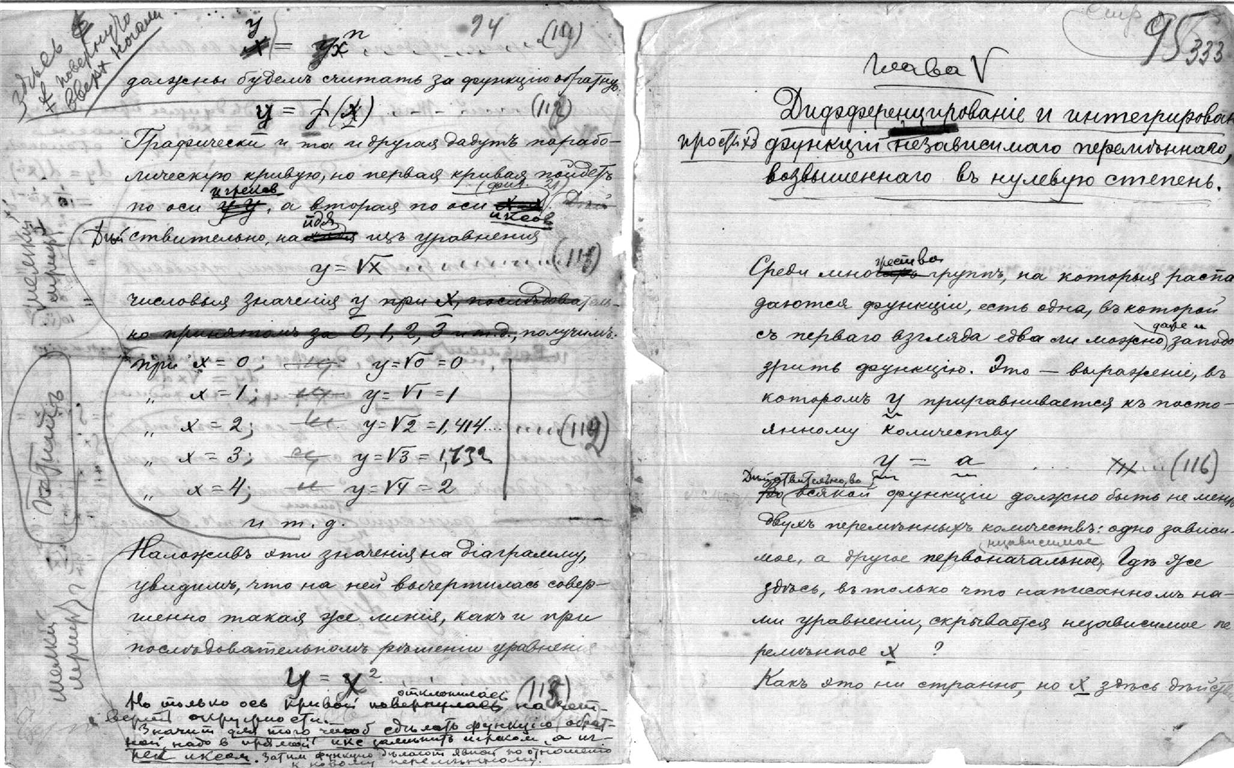 94
y = yxⁿ (111)
должны будемъ считать за функцію обратную.
y = f(x) (112)
Графически и та и другая дадутъ парабо-
лическую кривую, но первая кривая пойдетъ
по оси игрековъ, а вторая по оси иксовъ (фиг. 21)
Дѣйствительно, найдя изъ уравненія
y = √x (113)
числовыя значенія y при x, послѣдователь-
но принятомъ за 0, 1, 2, 3 и т.д., получимъ:
при x = 0; y = √0 = 0
„ x = 1; y = √1 = 1
„ x = 2; y = √2 = 1,414...
„ x = 3; y = √3 = 1,732
„ x = 4; y = √4 = 2
и т. д.
Наложивъ эти значенія на діаграмму,
увидимъ, что на ней вычертилась совер-
шенно такая же линія, какъ и при
послѣдовательномъ рѣшеніи уравненія
y = x²
Но только ось кривой отклонилась на чет-
верть окружности.
Значит для того чтоб сдѣлать функцію обрат-
ной, надо в прямой икс замѣнить игреком, а иг-
рек иксом. Затѣм функцію сдѣлать явной по отношенію
к новому перемѣнному.
здѣсь
повернуто
вверх ногами
мелкій
шрифт
петитъ
мелкій
шрифт
95
333
Глава V
Дифференцированіе и интегрирован
простых функцій независимаго перемѣннаго,
возвышеннаго въ нулевую степень.
Среди множества группъ, на которыя распа-
даются функціи, есть одна, въ которой
съ перваго взгляда едва ли можно даже и заподо-
зрить функцію. Это — выраженіе, въ
которомъ y приравнивается къ посто-
янному количеству
y = a (116)
Дѣйствительно, во всякой функціи должно быть не мен
двухъ перемѣнныхъ количествъ: одно зависи-
мое, а другое первоначальное, независимое. Гдѣ же
здѣсь, въ только что написанномъ на-
ми уравненіи, скрывается независимое пе
ремѣнное x ?
Какъ это ни странно, но x здѣсь дѣйств